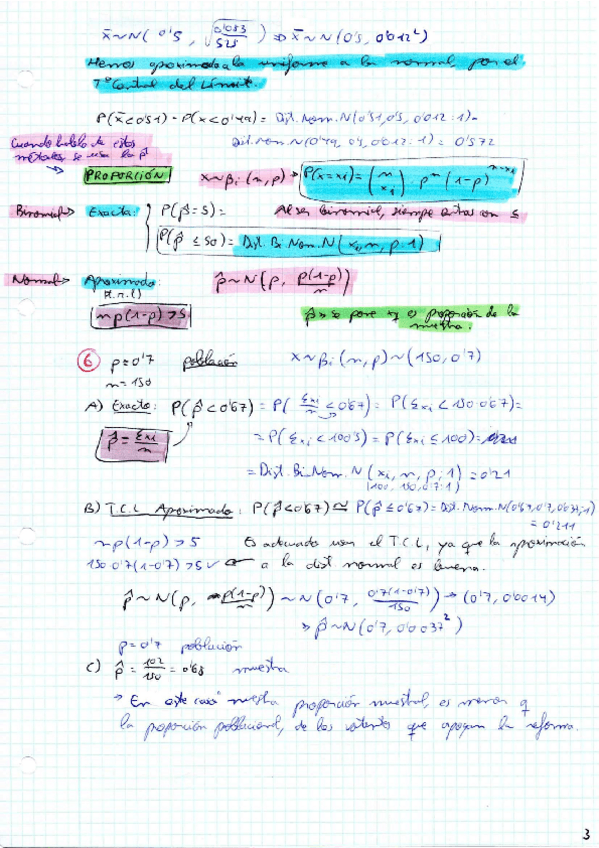 x̄ ~ N( 0'5, √(0'083/525) ) ⇒ x̄ ~ N(0'5, 0'012²)
Hemos aproximado a la uniforme a la normal, por el
Tº Central del Límite.
P(x̄<0'51) - P(x<0'49) = Dist. Nom. N(0'51, 0'5, 0'012:1) -
Dist. Nom. N(0'49, 0'5, 0'012:1) = 0'572
Cuando hablo de estos
se usa la p̂
PROPORCIÓN
x ~ Bi (n, p) → P(x=xi) = (n xi) pⁿ (1-p)
Binomial → Exacta:
P(p̂=5) =
Al ser binomial, siempre con ≤
P(p̂ ≤ 50) = Dist. Bi Nom. N (x, n, p:1)
Normal → Aproximada:
p̂ ~ N(p, p(1-p)/n)
np(1-p) > 5
p̂ → se pone es proporción de la
muestra.
6 p=0'7 población x ~ Bi (n, p) ~ (150, 0'7)
n = 150
A) Exacto: P(p̂<0'67) = P( Σxi/n < 0'67) = P(Σxi < 150·0'67) =
p̂ = Σxi/n
= P(Σxi < 100'5) = P(Σxi ≤ 100) =
= Dist. Bi. Nom. N (xi, n, p:1) = 0'21
(100, 150, 0'7:1)
B) T.C.L Aproximado: P(p̂<0'67) ≅ P(p̂≤0'67) = Dist. Nom. N(0'67, 0'7, 0'037:1)
= 0'211
np(1-p) > 5 Es adecuado usar el T.C.L, ya que la aproximación
150·0'7(1-0'7) > 5 ✓ a la dist normal es buena.
p̂ ~ N(p, p(1-p)/n) ~ N(0'7, 0'7(1-0'7)/150) → (0'7, 0'0014)
→ p̂ ~ N(0'7, 0'0037²)
p=0'7 población
C) p̂ = 102/150 = 0'68 muestra
→ En este caso nuestra proporción muestral, es menor q
la proporción poblacional, de los votantes que apoyan la reforma.
3